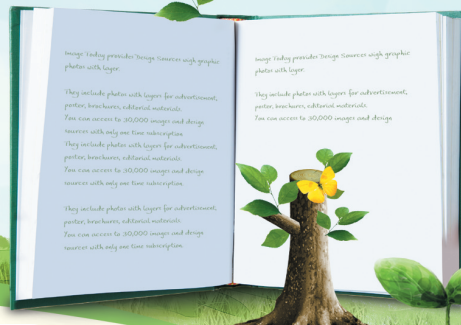 Image Today provider Design Sources wigh graphic
photos with layer.
They include photos with layers for advertisement,
poster, brochures, editorial materials.
You can access to 30,000 images and design
sources with only one time subscription.
They include photos with layers for advertisement,
poster, brochures, editorial materials.
You can access to 30,000 images and design
sources with only one time subscription.
They include photos with layers for advertisement,
poster, brochures, editorial materials.
You can access to 30,000 images and design
sources with only one time subscription.
Image Today provider Design Sources wigh graphic
photos with layer.
They include photos with layers for advertisement,
poster, brochures, editorial materials.
You can access to 30,000 images and design